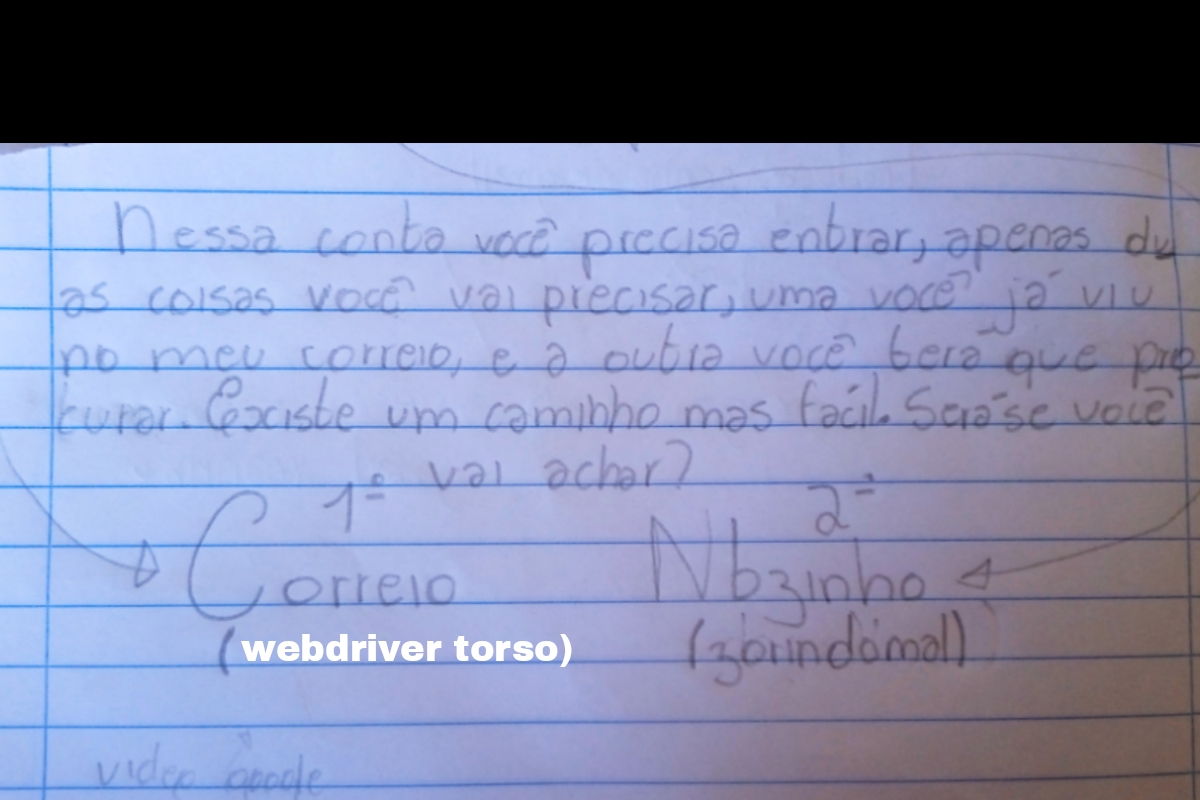 Nessa conta você precisa entrar, apenas du
as coisas você vai precisar, uma você já viu
no meu correio, e a outra você terá que pro
curar. Existe um caminho mas facil. Será se você
vai achar?
1º 2º
Correio Nbzinho
(webdriver torso) (zbrindámal)
video google